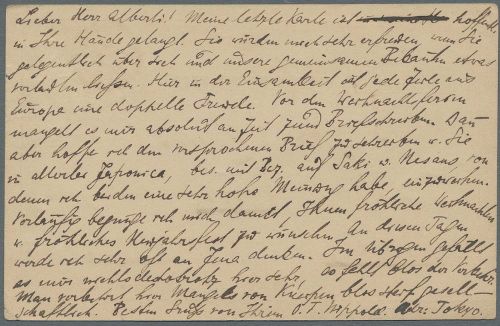 Lieber Herr Alberti! Meine letzte Karte ist hoffentl.
in Ihre Hände gelangt. Sie würden mich sehr erfreuen wenn Sie
gelegentlich über sich und unsere gemeinsamen Bekannten etwas
verlauten ließen. Hier in der Einsamkeit ist jede Zeile aus
Europa eine doppelte Freude. Vor den Weihnachtsferien
mangelt es mir absolut an Zeit zum Briefschreiben. Dann
aber hoffe ich den versprochenen Brief zu schreiben u. Sie
in allerlei Japonica, bes. mit Bez. auf Saki u. Nesans von
denen ich beiden eine sehr hohe Meinung habe, einzuweihen.
Vorläufig begnüge ich mich damit Ihnen fröhliche Weihnachten
u. fröhliches Neujahrsfest zu wünschen. An diesen Tagen
werde ich sehr oft an Jena denken. Im übrigen gefällt
es mir nichtsdestotrotz hier sehr, es fehlt blos der Verkehr.
Man verkehrt hier Mangels von Kneipen blos steif gesell-
schaftlich. Besten Gruss von Ihrem O. Nippold. Tokyo.